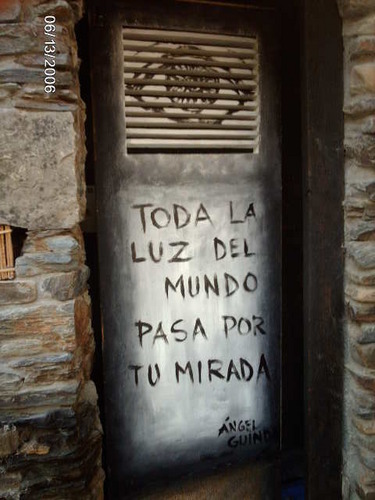 06/13/2006
TODA LA
LUZ DEL
MUNDO
PASA POR
TU MIRADA
ÁNGEL